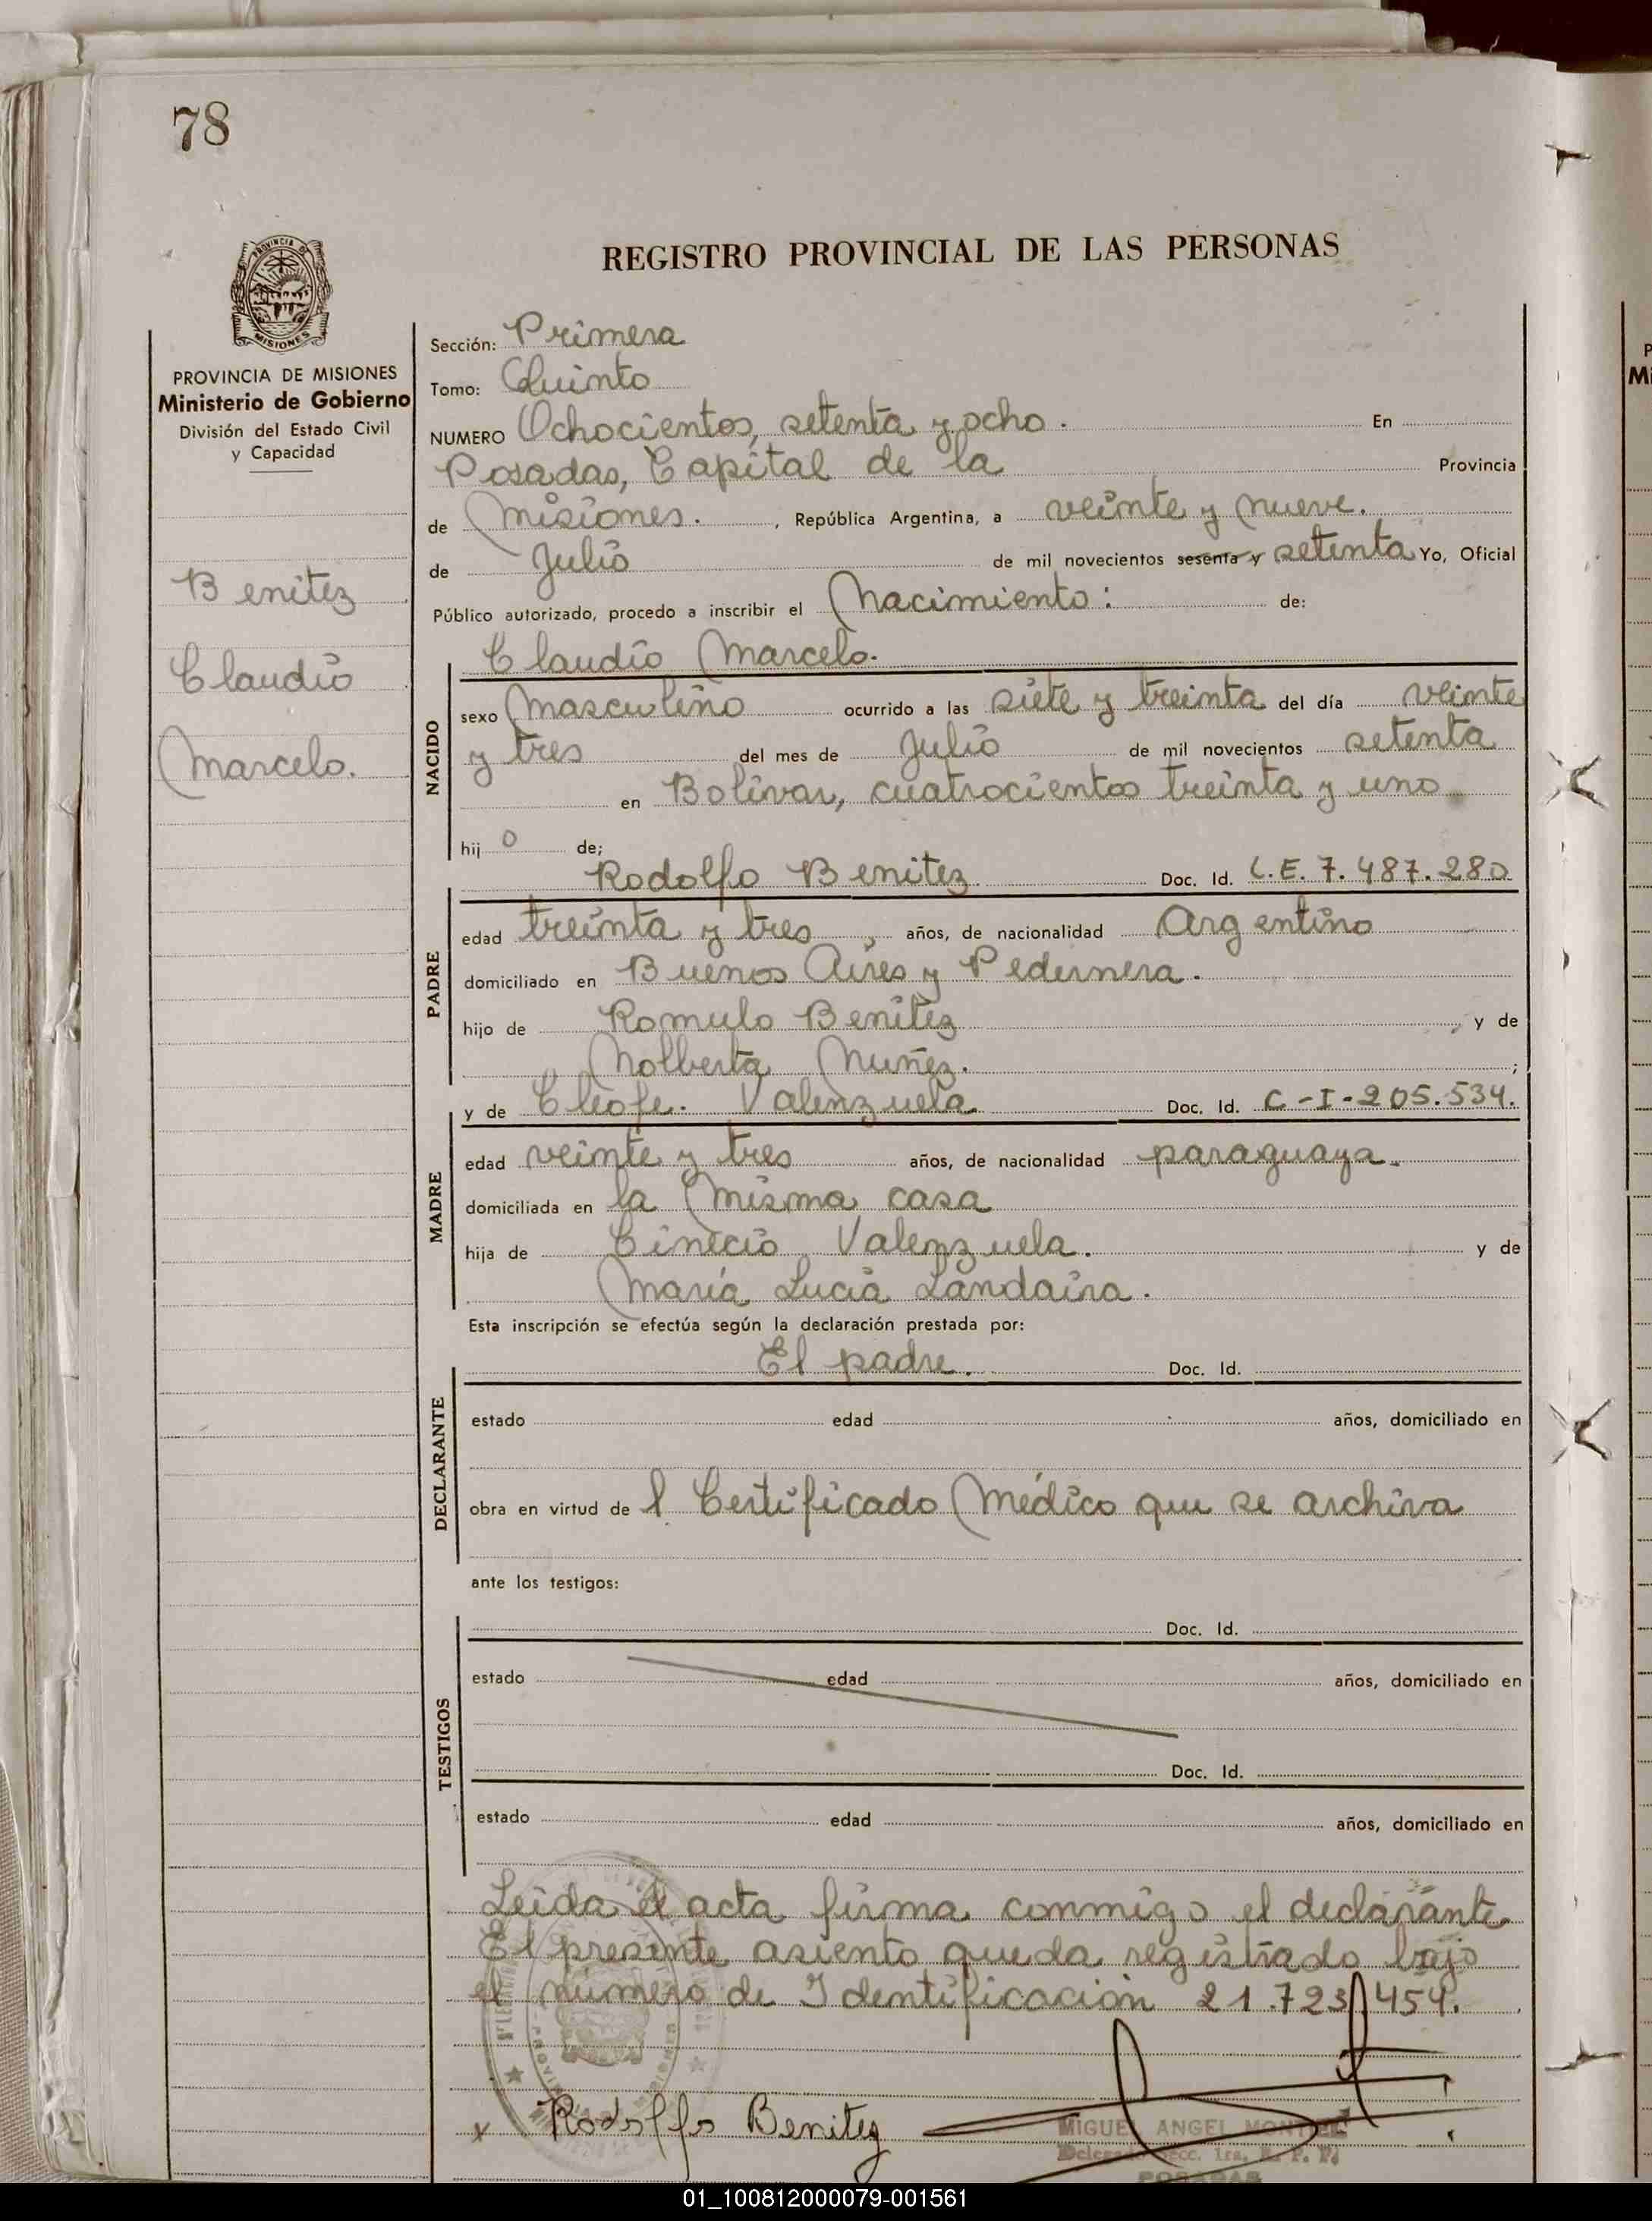 78
REGISTRO PROVINCIAL DE LAS PERSONAS
PROVINCIA DE
MISIONES
PROVINCIA DE MISIONES
Ministerio de Gobierno
División del Estado Civil
y Capacidad
Benitez
Claudio
Marcelo.
Sección: Primera
Tomo: Quinto
NUMERO Ochocientos, setenta y ocho. En
Posadas, Capital de la Provincia
de Misiones. , República Argentina, a veinte y nueve.
de Julio de mil novecientos sesenta y setenta Yo, Oficial
Público autorizado, procedo a inscribir el Nacimiento: de:
Claudio Marcelo.
NACIDO
sexo Masculino ocurrido a las siete y treinta del día veinte
y tres del mes de Julio de mil novecientos setenta
en Bolívar, cuatrocientos treinta y uno
hij o de;
Rodolfo Benitez Doc. Id. L.E. 7.487.280
PADRE
edad treinta y tres , años, de nacionalidad Argentino
domiciliado en Buenos Aires y Pedernera.
hijo de Romulo Benitez , y de
Nolberta Nuñez. ;
y de Cleofe. Valenzuela Doc. Id. C-I-205.534.
MADRE
edad veinte y tres años, de nacionalidad paraguaya.
domiciliada en la Misma casa
hija de Cinecio Valenzuela. y de
María Lucia Landaira.
Esta inscripción se efectúa según la declaración prestada por:
El padre. Doc. Id.
DECLARANTE
estado edad años, domiciliado en
obra en virtud de l Certificado Médico que se archiva
ante los testigos:
Doc. Id.
TESTIGOS
estado edad años, domiciliado en
Doc. Id.
estado edad años, domiciliado en
Leida el acta firma conmigo el declarante
El presente asiento queda registrado bajo
el número de Identificación 21.723.454.
x Rodolfo Benitez
MIGUEL ANGEL
POSADAS
01_100812000079-001561